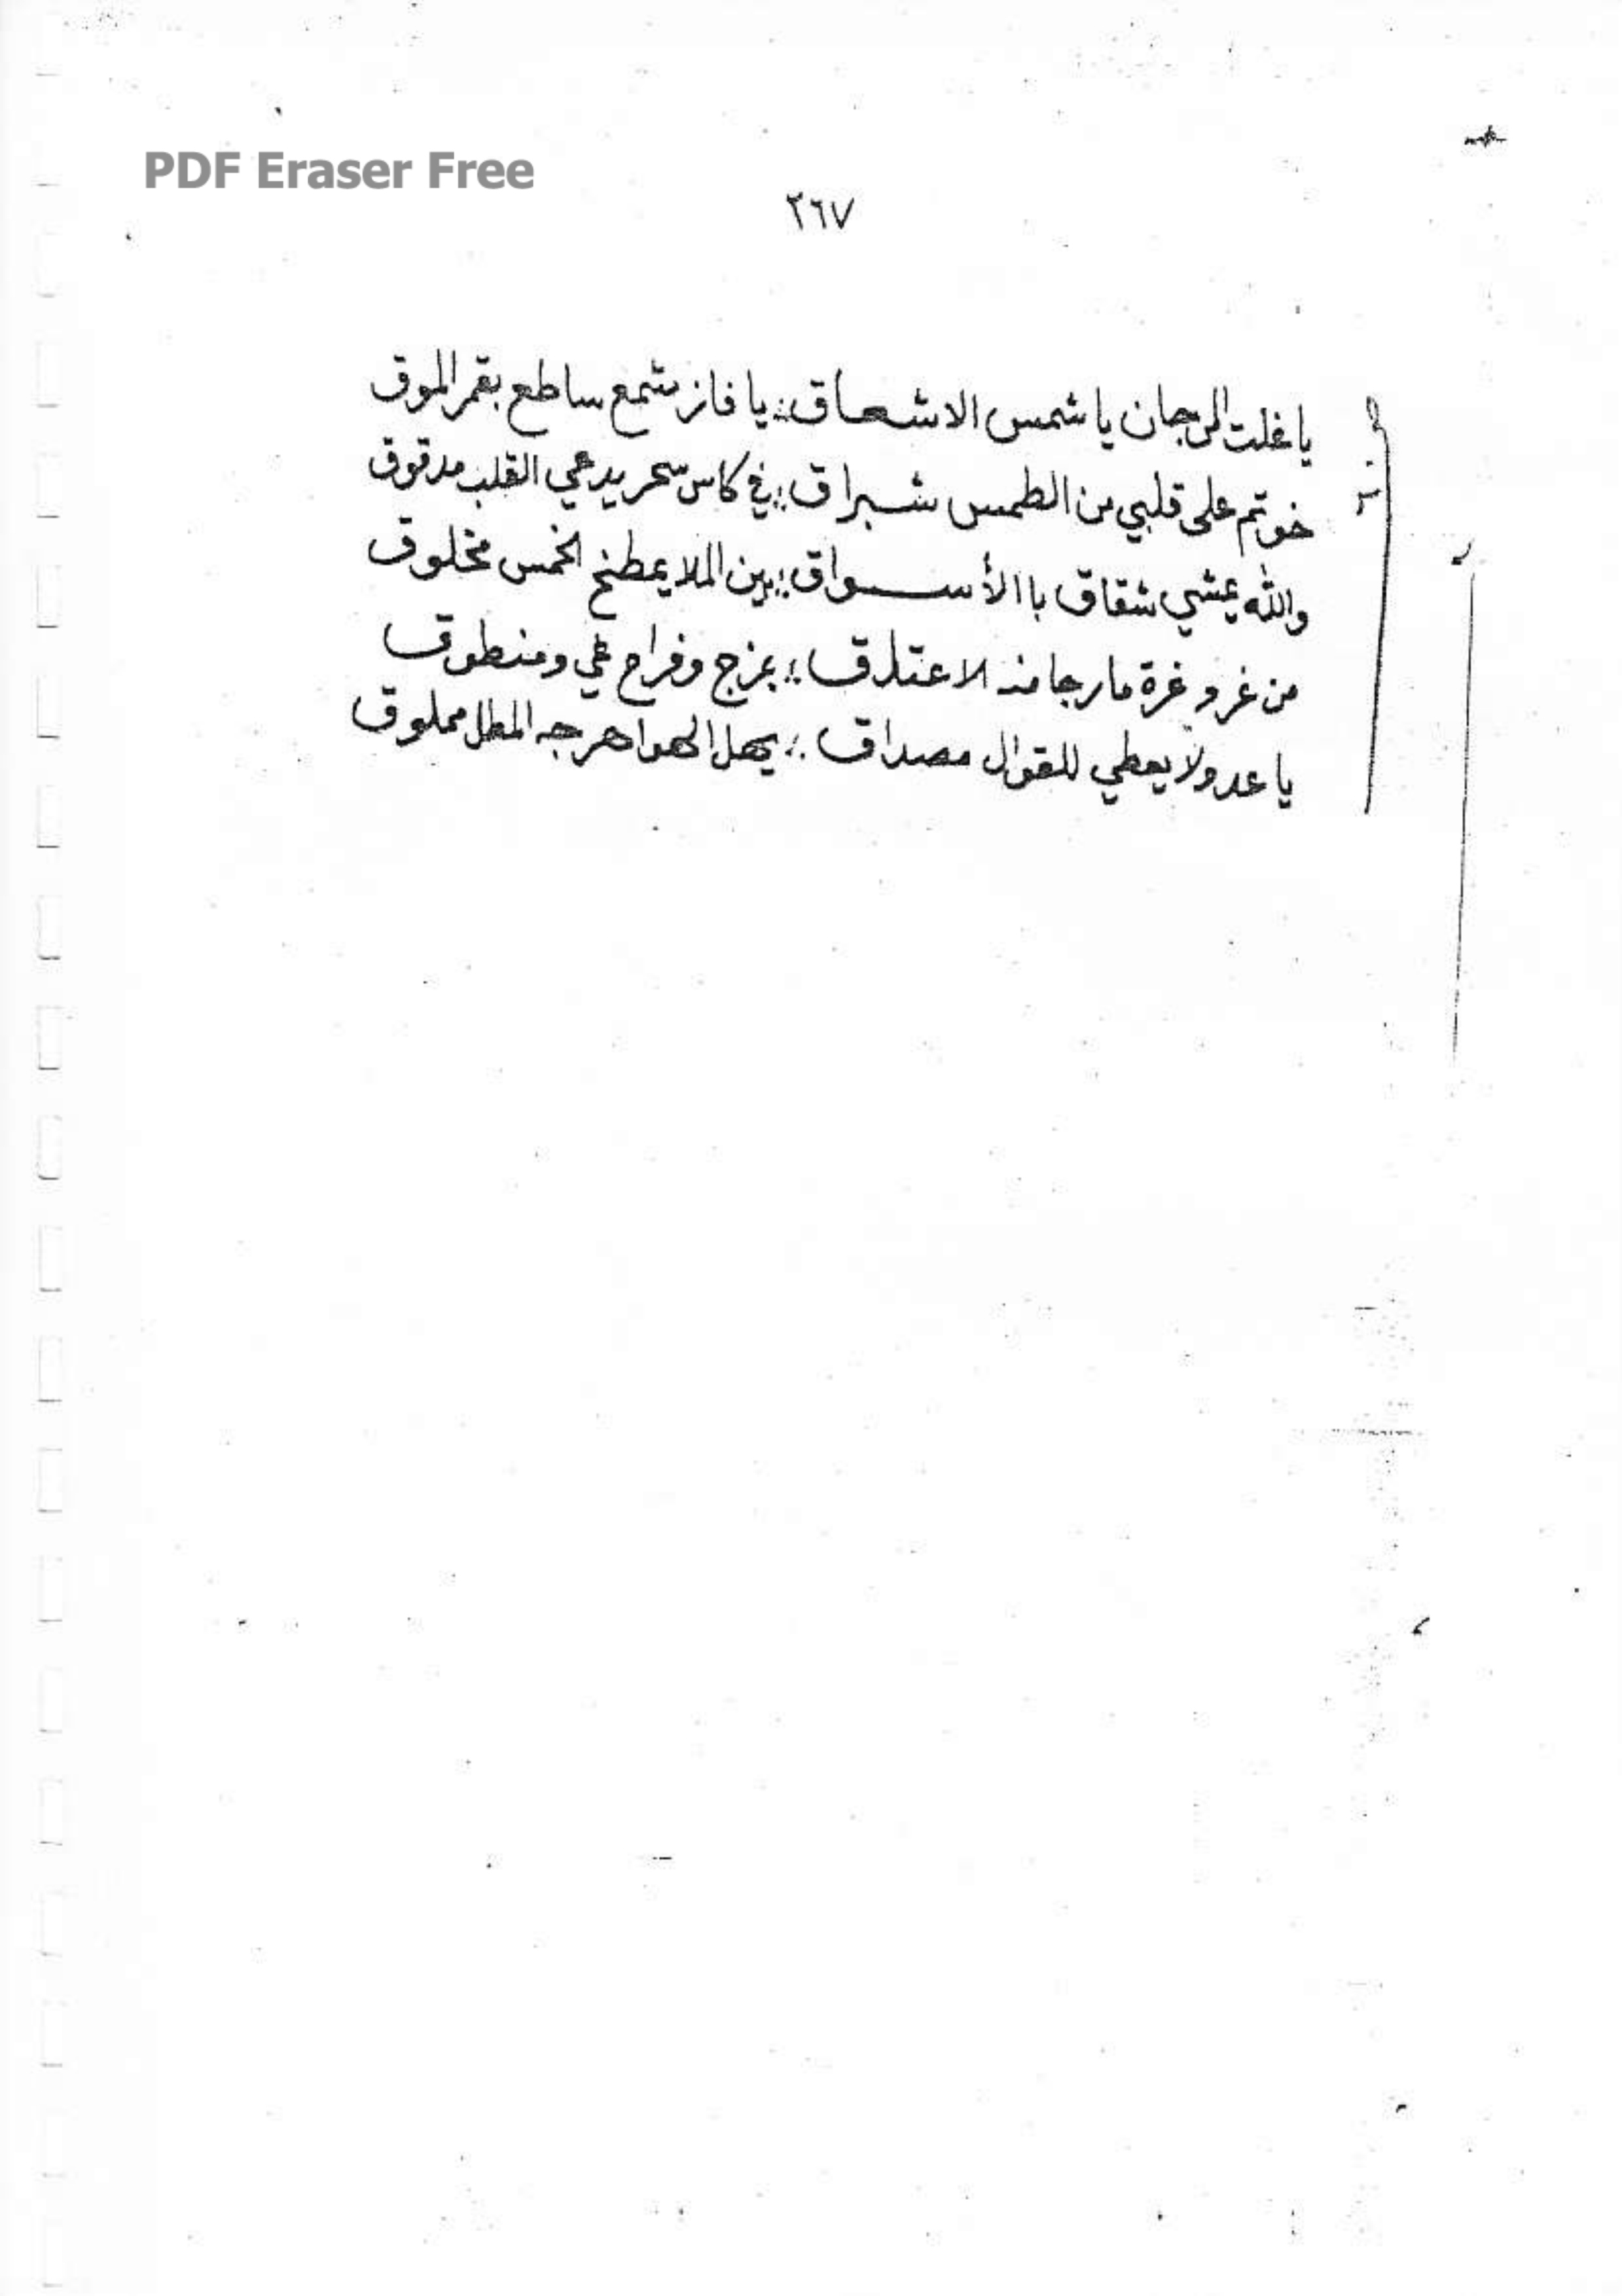 PDF Eraser Free
٢٦٧
يا غلت المرجان يا شمس الاشعاق :: يا فاز شمع ساطع بقمر الموق
خوتم على قلبي من الطمس شبراق :: في كاس سحر يدعي القلب مدقوق
والله يمشي شقاق با الأسواق :: بين الملا يمطخ الخمس مخلوق
من غر و غرة ما رجا منه الاعتلاق :: بمزج وفراج عي ومنطوق
يا عدولا يعطي للقوال مصداق :: يحمل الهوا هرجه المطل مملوق